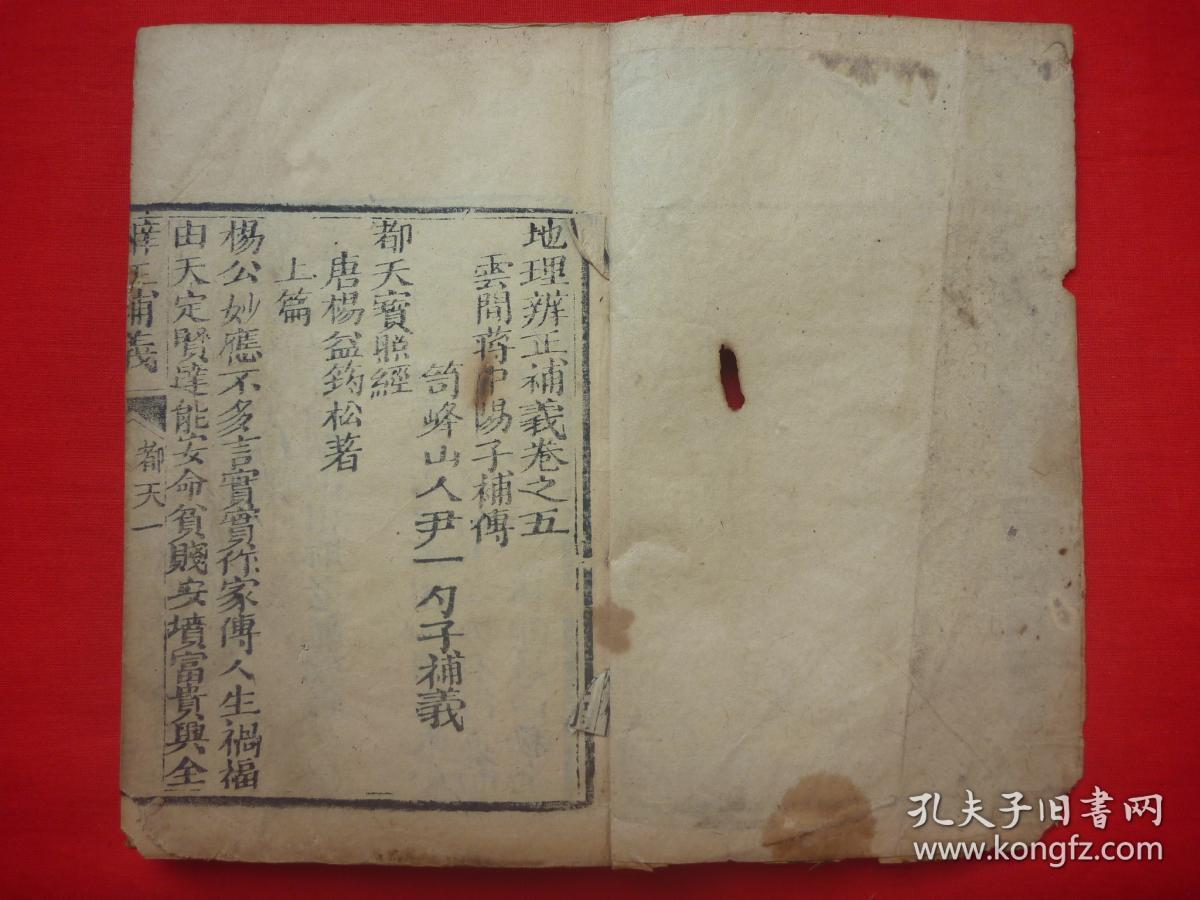 地理辨正補義卷之五
雲間蔣中陽子補傳
笥峰山人尹一勺子補義
都天寳照經
唐楊益筠松著
上篇
楊公妙應不多言實實作家傳人生禍福
由天定賢達能安命貧賤安墳富貴興全
辨正補義
都天一
孔夫子旧書网
www.kongfz.com